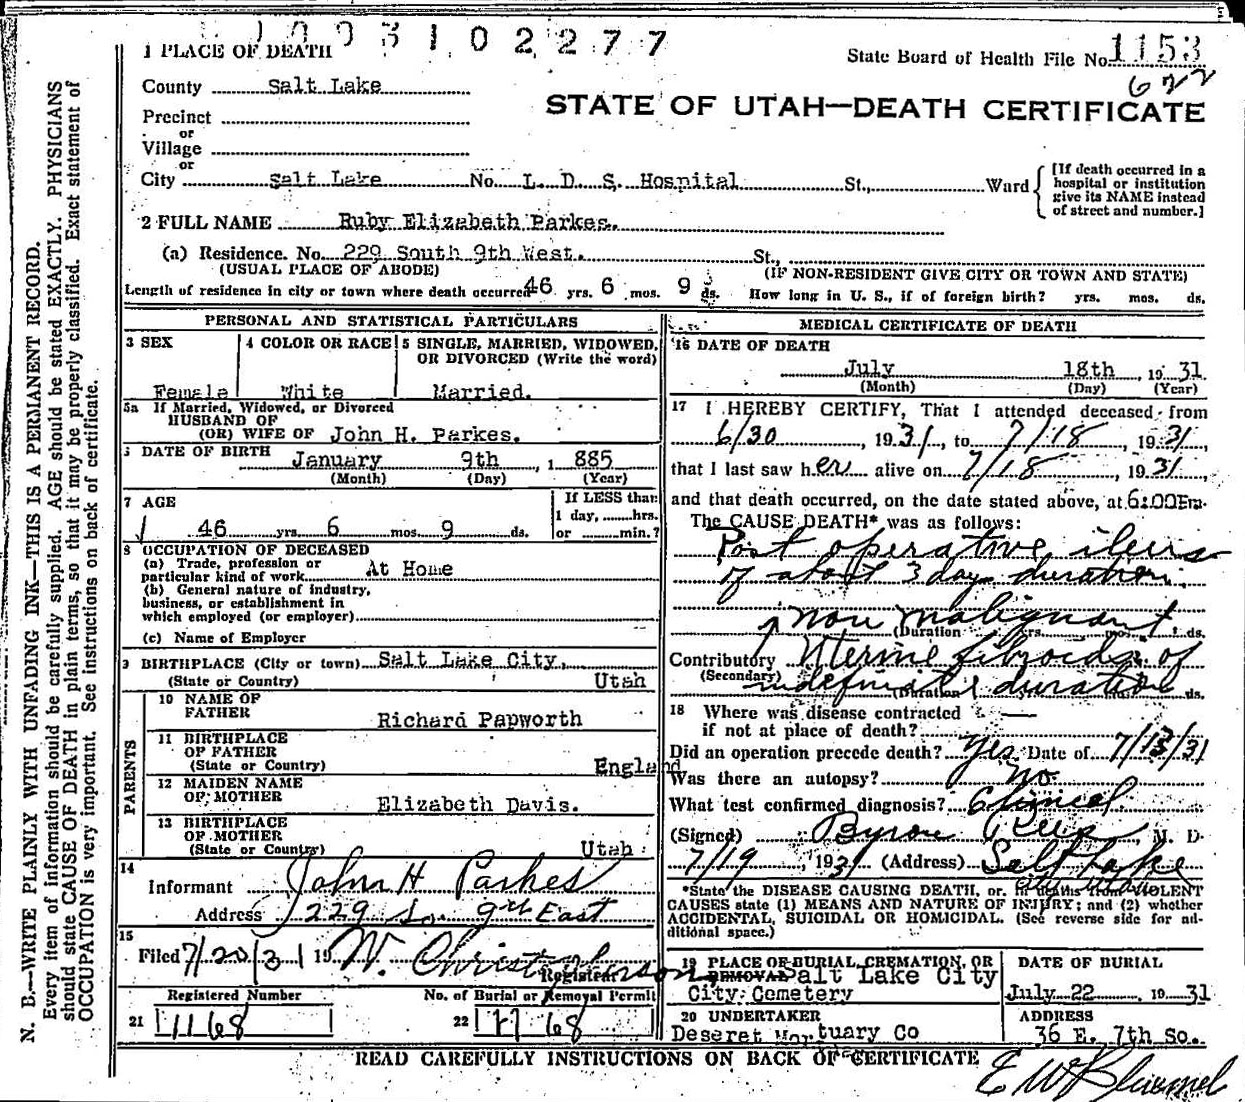 1003102277
1 PLACE OF DEATH
State Board of Health File No. 1153
622
County Salt Lake
STATE OF UTAH—DEATH CERTIFICATE
Precinct
or
Village
or
City Salt Lake No. L. D. S. Hospital St., Ward
[If death occurred in a
hospital or institution
give its NAME instead
of street and number.]
2 FULL NAME Ruby Elizabeth Parkes.
(a) Residence. No. 229 South 9th West. St.,
(USUAL PLACE OF ABODE) (IF NON-RESIDENT GIVE CITY OR TOWN AND STATE)
Length of residence in city or town where death occurred 46 yrs. 6 mos. 9 ds. How long in U. S., if of foreign birth? yrs. mos. ds.
PERSONAL AND STATISTICAL PARTICULARS
3 SEX 4 COLOR OR RACE 5 SINGLE, MARRIED, WIDOWED,
OR DIVORCED (Write the word)
Female White Married.
5a If Married, Widowed, or Divorced
HUSBAND OF
(OR) WIFE OF John H. Parkes.
6 DATE OF BIRTH January 9th, 1885
(Month) (Day) (Year)
7 AGE If LESS than
1 day, hrs.
46 yrs. 6 mos. 9 ds. or min.?
8 OCCUPATION OF DECEASED
(a) Trade, profession or
particular kind of work At Home
(b) General nature of industry,
business, or establishment in
which employed (or employer)
(c) Name of Employer
9 BIRTHPLACE (City or town) Salt Lake City,
(State or Country) Utah
PARENTS
10 NAME OF
FATHER Richard Papworth
11 BIRTHPLACE
OF FATHER
(State or Country) England
12 MAIDEN NAME
OF MOTHER Elizabeth Davis.
13 BIRTHPLACE
OF MOTHER
(State or Country) Utah
14
Informant John H Parkes
Address 229 So. 9th East
15
Filed 7/20/31 19 W. Christopherson
Registrar
Registered Number No. of Burial or Removal Permit
21 1168 22 1168
MEDICAL CERTIFICATE OF DEATH
16 DATE OF DEATH
July 18th, 1931
(Month) (Day) (Year)
17 I HEREBY CERTIFY, That I attended deceased from
6/30, 1931, to 7/18, 1931,
that I last saw her alive on 7/18, 1931
and that death occurred, on the date stated above, at 6:00Pm.
The CAUSE DEATH* was as follows:
Post operative ileus
of about 3 days duration.
non malignant
(Duration yrs. mos. ds.
Contributory Uterine fibroids of
(Secondary) indefinite duration
(Duration ds.
18 Where was disease contracted
if not at place of death? —
Did an operation precede death? Yes Date of 7/13/31
Was there an autopsy? No
What test confirmed diagnosis? Clinical
(Signed) Byron Rees, M. D.
7/19, 1931 (Address) Salt Lake
*State the DISEASE CAUSING DEATH, or, in deaths from VIOLENT
CAUSES state (1) MEANS AND NATURE OF INJURY; and (2) whether
ACCIDENTAL, SUICIDAL OR HOMICIDAL. (See reverse side for ad-
ditional space.)
19 PLACE OF BURIAL, CREMATION, OR
REMOVAL Salt Lake City
City Cemetery
DATE OF BURIAL
July 22, 1931
20 UNDERTAKER
Deseret Mortuary Co
ADDRESS
36 E. 7th So.
READ CAREFULLY INSTRUCTIONS ON BACK OF CERTIFICATE
N. B.—WRITE PLAINLY WITH UNFADING INK—THIS IS A PERMANENT RECORD.
Every item of information should be carefully supplied. AGE should be stated EXACTLY. PHYSICIANS
should state CAUSE OF DEATH in plain terms, so that it may be properly classified. Exact statement of
OCCUPATION is very important. See instructions on back of certificate.